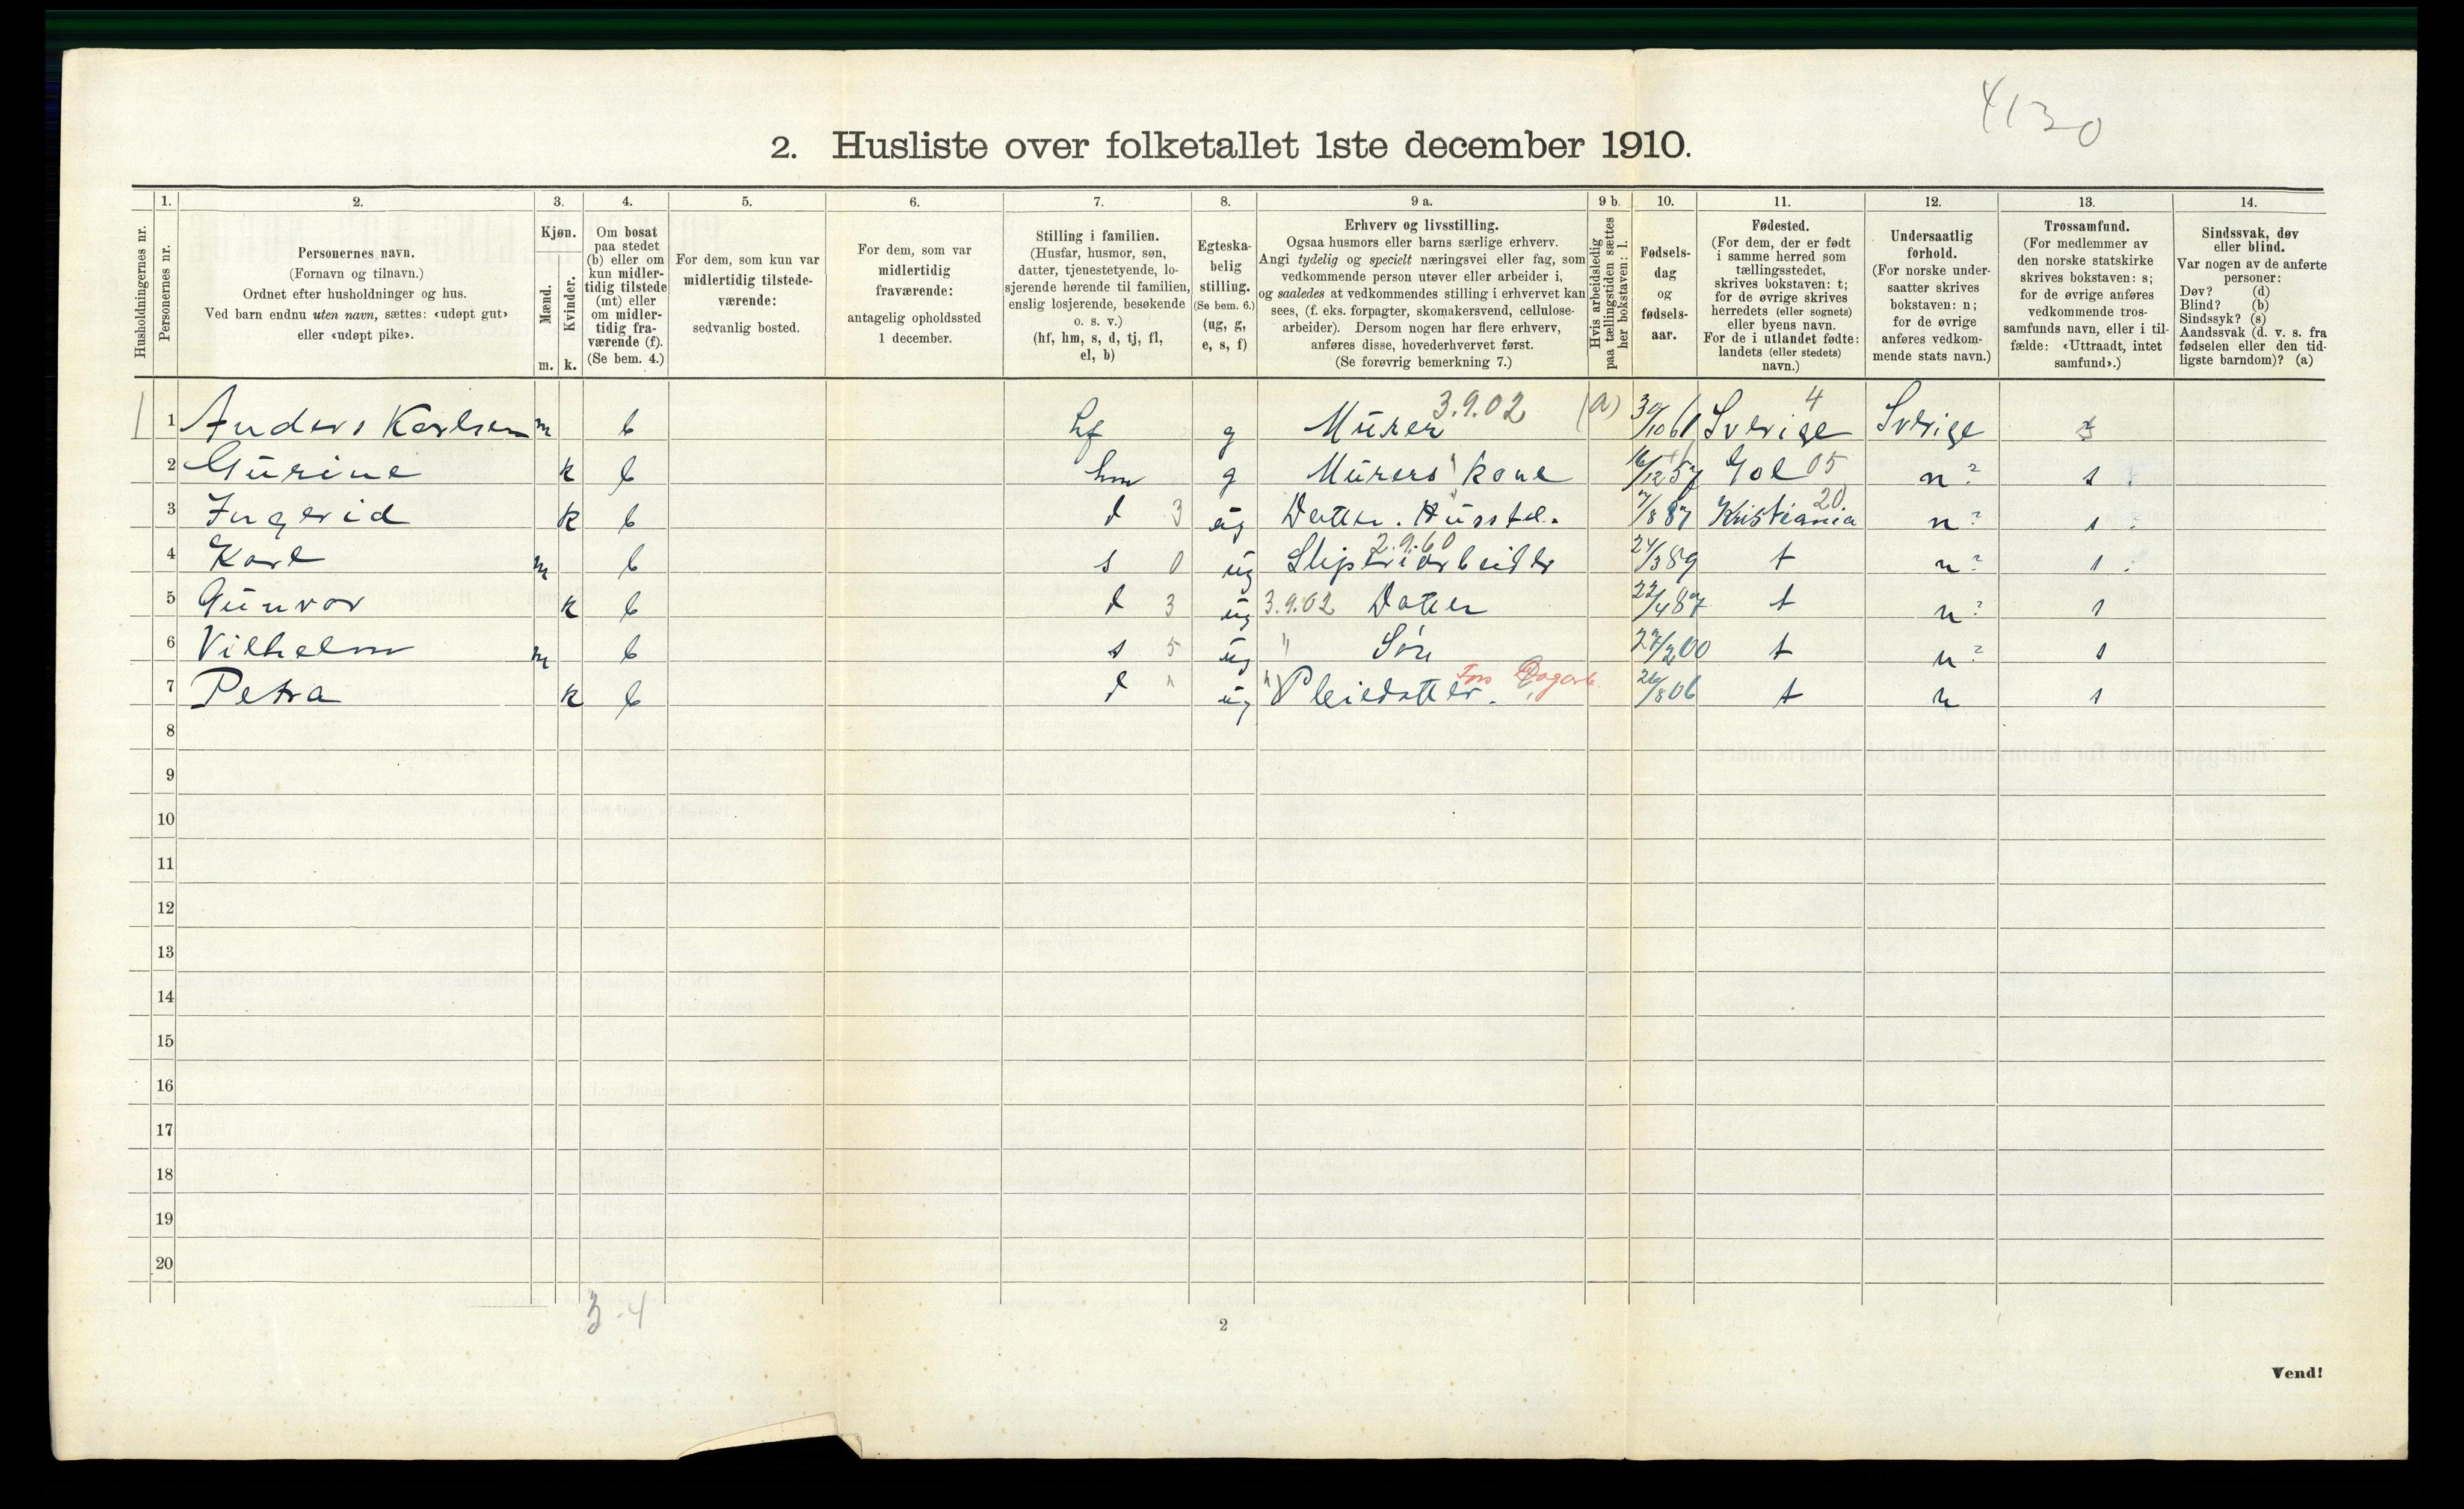 4130
2. Husliste over folketallet 1ste december 1910.
1. 2. 3. 4. 5. 6. 7. 8. 9 a. 9 b. 10. 11. 12. 13. 14.
Husholdningernes nr.
Personernes nr.
Personernes navn.
(Fornavn og tilnavn.)
Ordnet efter husholdninger og hus.
Ved barn endnu uten navn, sættes: «udøpt gut»
eller «udøpt pike».
Kjøn.
Mænd.
Kvinder.
m. k.
Om bosat
paa stedet
(b) eller om
kun midler-
tidig tilstede
(mt) eller
om midler-
tidig fra-
værende (f).
(Se bem. 4.)
For dem, som kun var
midlertidig tilstede-
værende:
sedvanlig bosted.
For dem, som var
midlertidig
fraværende:
antagelig opholdssted
1 december.
Stilling i familien.
(Husfar, husmor, søn,
datter, tjenestetyende, lo-
sjerende hørende til familien,
enslig losjerende, besøkende
o. s. v.)
(hf, hm, s, d, tj, fl,
el, b)
Egteska-
belig
stilling.
(Se bem. 6.)
(ug, g,
e, s, f)
Erhverv og livsstilling.
Ogsaa husmors eller barns særlige erhverv.
Angi tydelig og specielt næringsvei eller fag, som
vedkommende person utøver eller arbeider i,
og saaledes at vedkommendes stilling i erhvervet kan
sees, (f. eks. forpagter, skomakersvend, cellulose-
arbeider). Dersom nogen har flere erhverv,
anføres disse, hovederhvervet først.
(Se forøvrig bemerkning 7.)
Hvis arbeidsledig
paa tællingstiden sættes
her bokstaven: l.
Fødsels-
dag
og
fødsels-
aar.
Fødested.
(For dem, der er født
i samme herred som
tællingsstedet,
skrives bokstaven: t;
for de øvrige skrives
herredets (eller sognets)
eller byens navn.
For de i utlandet fødte:
landets (eller stedets)
navn.)
Undersaatlig
forhold.
(For norske under-
saatter skrives
bokstaven: n;
for de øvrige
anføres vedkom-
mende stats navn.)
Trossamfund.
(For medlemmer av
den norske statskirke
skrives bokstaven: s;
for de øvrige anføres
vedkommende tros-
samfunds navn, eller i til-
fælde: «Uttraadt, intet
samfund».)
Sindssvak, døv
eller blind.
Var nogen av de anførte
personer:
Døv? (d)
Blind? (b)
Sindssyk? (s)
Aandssvak (d. v. s. fra
fødselen eller den tid-
ligste barndom)? (a)
1 1 Anders Karlsen m b hf g Murer 3.9.02 (a) 30/10 61 Sverige 4 Sverige s
2 Gurine k b hm g Murers kone 16/12 57 Gol 05 n ? s
3 Ingerid k b d 3 ug Datter. Husstel. 7/8 87 Kristiania 20 n ? s
4 Karl m b s 0 ug Sliperiarbeider 2.9.60 24/3 89 t n ? s
5 Gunvor k b d 3 ug 3.9.02 Datter 22/4 87 t n ? s
6 Vilhelm m b s 5 ug " Søn 27/2 00 t n ? s
7 Petra k b d " ug " Pleiedatter. 26/8 06 t n s
8
9
10
11
12
13
14
15
16
17
18
19
20
3-4
2
Vend!